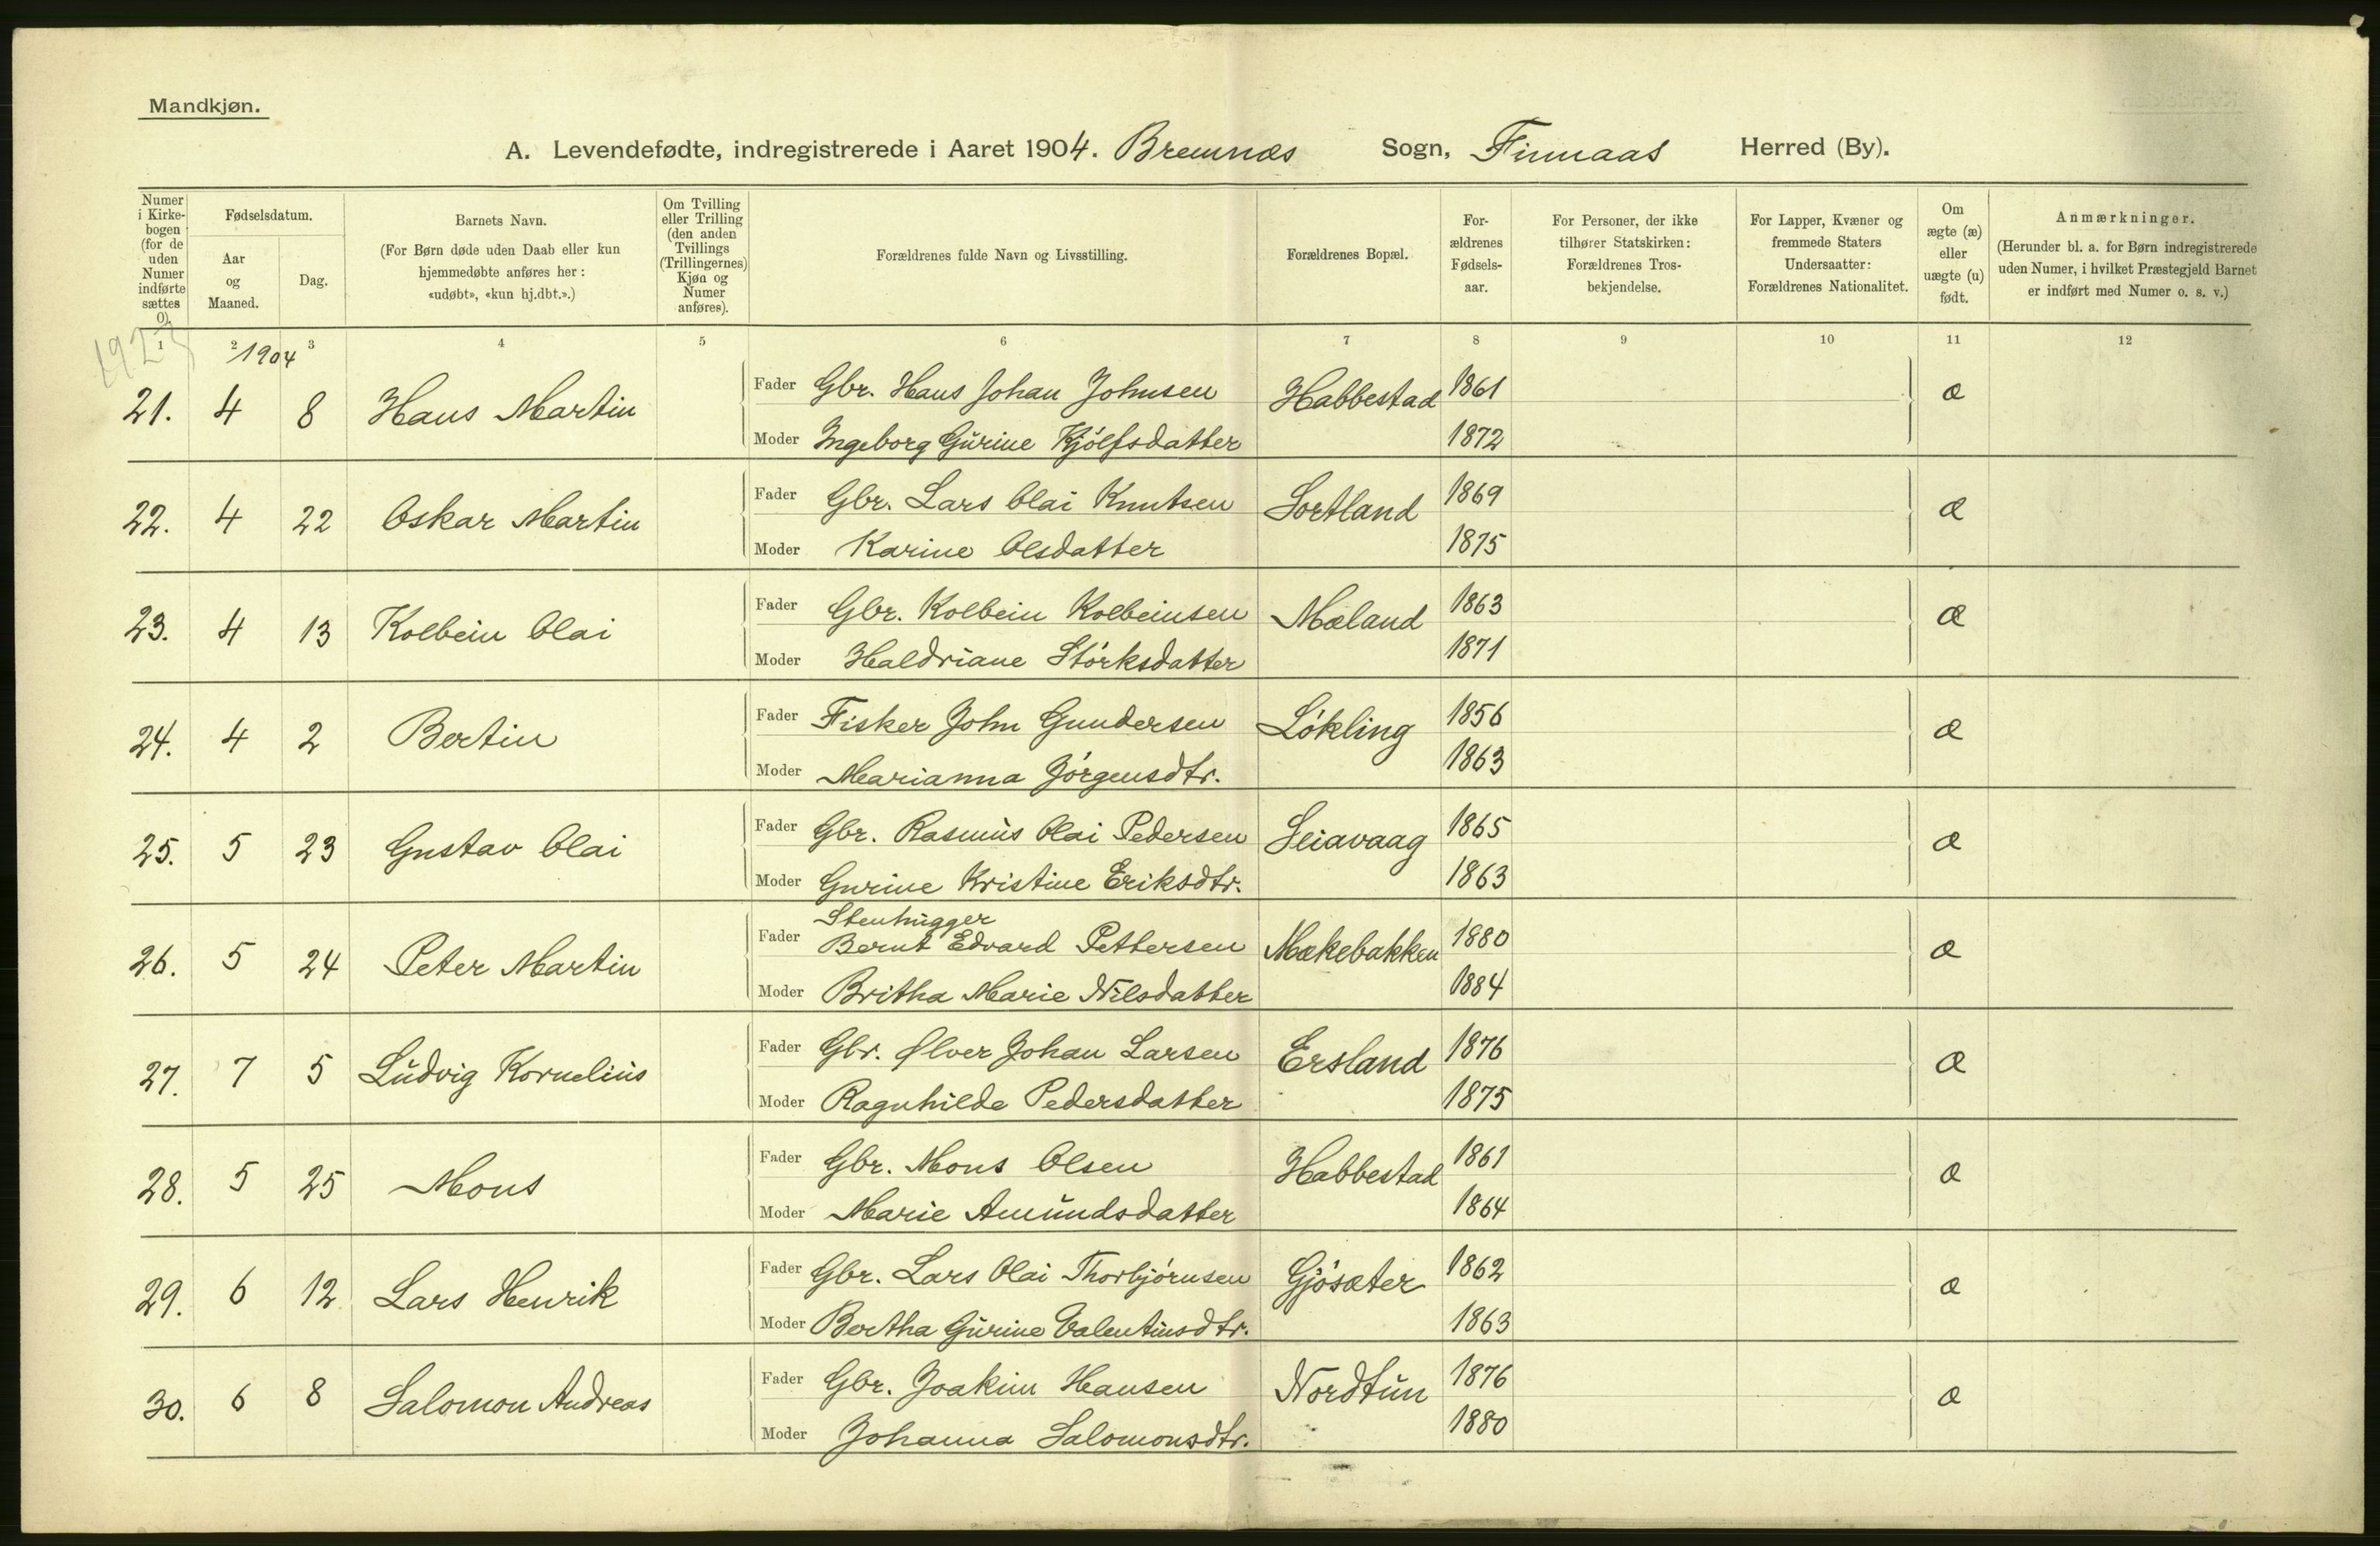 Mandkjøn.
A. Levendefødte, indregistrerede i Aaret 1904. Bremnæs Sogn, Finnaas Herred (By).
Numer i Kirkebogen (for de uden Numer indførte sættes 0).
Fødselsdatum.
Aar og Maaned.
Dag.
Barnets Navn.
(For Børn døde uden Daab eller kun hjemmedøbte anføres her: «udøbt», «kun hj.dbt.».)
Om Tvilling eller Trilling (den anden Tvillings (Trillingernes) Kjøn og Numer anføres).
Forældrenes fulde Navn og Livsstilling.
Forældrenes Bopæl.
Forældrenes Fødselsaar.
For Personer, der ikke tilhører Statskirken: Forældrenes Trosbekjendelse.
For Lapper, Kvæner og fremmede Staters Undersaatter: Forældrenes Nationalitet.
Om ægte (æ) eller uægte (u) født.
Anmærkninger.
(Herunder bl. a. for Børn indregistrerede uden Numer, i hvilket Præstegjeld Barnet er indført med Numer o. s. v.)
1 2 3 4 5 6 7 8 9 10 11 12
1904
21. 4 8 Hans Martin Fader Gbr. Hans Johan Johnsen Habbestad 1861 æ
Moder Ingeborg Gurine Kjølfsdatter 1872
22. 4 22 Oskar Martin Fader Gbr. Lars Olai Knutsen Sortland 1869 æ
Moder Karine Olsdatter 1875
23. 4 13 Kolbein Olai Fader Gbr. Kolbein Kolbeinsen Mæland 1863 æ
Moder Haldriane Størksdatter 1871
24. 4 2 Bertin Fader Fisker John Gundersen Løkling 1856 æ
Moder Marianna Jørgensdtr. 1863
25. 5 23 Gustav Olai Fader Gbr. Rasmus Olai Pedersen Seiavaag 1865 æ
Moder Gurine Kristine Eriksdtr. 1863
Stenhugger
26. 5 24 Peter Martin Fader Bernt Edvard Pettersen Mækebakken 1880 æ
Moder Britha Marie Nilsdatter 1884
27. 7 5 Ludvig Kornelius Fader Gbr. Ølver Johan Larsen Ersland 1876 æ
Moder Ragnhilde Pedersdatter 1875
28. 5 25 Mons Fader Gbr. Mons Olsen Habbestad 1861 æ
Moder Marie Amundsdatter 1864
29. 6 12 Lars Henrik Fader Gbr. Lars Olai Thorbjørnsen Gjøsæter 1862 æ
Moder Bertha Gurine Valentinsdtr. 1863
30. 6 8 Salomon Andreas Fader Gbr. Joakim Hansen Nordtun 1876 æ
Moder Johanna Salomonsdtr. 1880